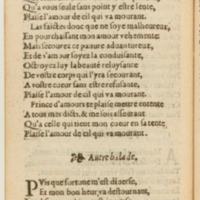 Qu'a vous seule sans point y estre lente,
Plaise l'amour de cil qui va mourant.
Las faictes donc que ne soye malheureux,
En pourchassant mon amour vehemente:
Mais secourez ce pauure aduantureux,
Et de s'amour soyez la conduisante,
Ostroyez luy la beauté reluysante
De vostre corps qui l'yra secourant,
A vous sans estre en nulle desplaisante,
Plaise l'amour de cil qui va mourant.
Prince d'amours te plaise mettre entente
A tous mes dicts, & me sois aliourant
Qu'a celle qui tient mon cœur en sa tente
Plaise l'amour de cil qui va mourant.
Autre balade.
PVis que fortune m'est diuerse,
Et mon bon heur va destournant,